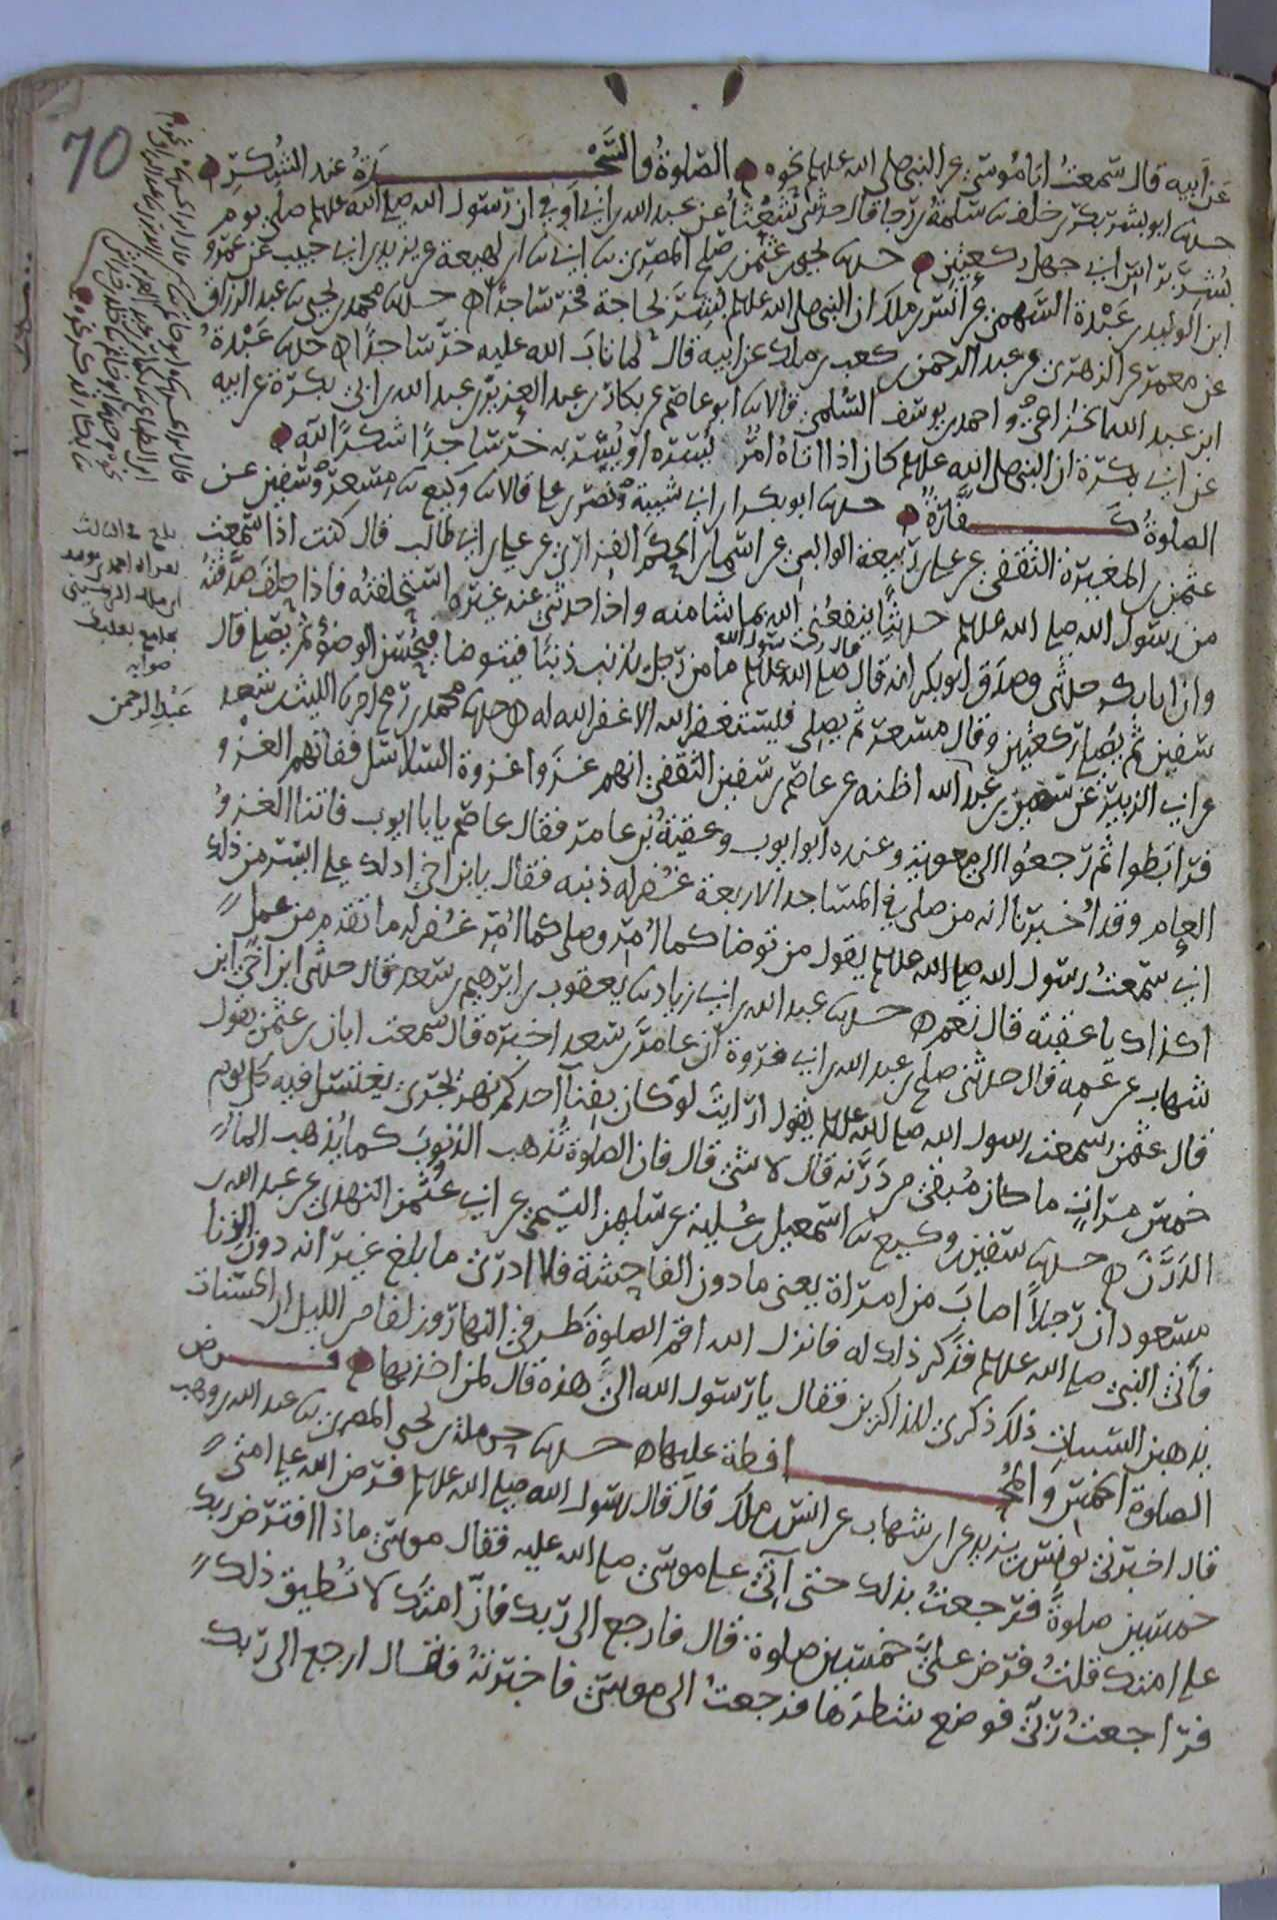 70
عن ابيه قال سمعت ابا موسى عن النبي صلى الله علىه وسلم نحوه الصلوة والسجدة عند الشكر
حدثنا ابو بشر بكر بن خلف ثنا سلمة بن رجا قال حدثتني شعثا عن عبد الله بن ابي اوفى ان رسول الله صلى الله عليه وسلم صلى يوم
بشر براس ابي جهل ركعتين حدثنا يحيى بن عثمن بن صلح المصري ثنا ابي ثنا ابن لهيعة عن يزيد بن ابي حبيب عن عمرو
ابن الوليد بن عبدة السهمي عن انس بن ملك ان النبي صلى الله عليه وسلم بشر بحاجة فخر ساجدا حدثنا محمد بن يحيى ثنا عبد الرزاق
عن معمر عن الزهري عن عبد الرحمن بن كعب بن ملك عن ابيه قال لما تاب الله عليه خر ساجدا حدثنا عبدة
ابن عبد الله الخزاعي واحمد بن يوسف السلمي قالا ثنا ابو عاصم عن بكار بن عبد العزيز بن عبد الله بن ابي بكرة عن ابيه
عن ابي بكرة ان النبي صلى الله عليه وسلم كان اذا اتاه امر يسره او يسر به خر ساجدا شكرا لله
الصلوة كفارة حدثنا ابو بكر بن ابي شيبة ونصر بن علي قالا ثنا وكيع ثنا مسعر وسفين عن
عثمن بن المغيرة الثقفي عن علي بن ربيعة الوالبي عن اسما بن الحكم الفزاري عن علي بن ابي طالب قال كنت اذا سمعت
من رسول الله صلى الله عليه وسلم حديثا ينفعني الله بما شا منه واذا حدثني عنه غيره استحلفته فاذا حلف صدقته
وان ابا بكر حدثني وصدق ابو بكر انه قال قال رسول الله صلى الله عليه وسلم ما من رجل يذنب ذنبا فيتوضا فيحسن الوضو ثم يصلي قال
سفين ثم يصلي ركعتين وقال مسعر ثم يصلي فيستغفر الله الا غفر الله له حدثنا محمد بن رمح اخبرنا الليث بن سعد
عن ابي الزبير عن سفين بن عبد الله اظنه عن عاصم بن سفين الثقفي انهم غزوا غزوة السلاسل ففاتهم الغزو
فرابطوا ثم رجعوا الى معوية وعنده ابو ايوب وعقبة بن عامر فقال عاصم يا با ايوب فاتنا الغزو
العام وقد اخبرنا انه من صلى في المساجد الاربعة غفر له ذنبه فقال يا بن اخي ادلك على ايسر من ذلك
اني سمعت رسول الله صلى الله عليه وسلم يقول من توضا كما امر وصلى كما امر غفر له ما تقدم من عمل
اكذاك يا عقبة قال نعم حدثنا عبد الله بن ابي زياد ثنا يعقوب بن ابرهيم بن سعد قال حدثني ابن اخي ابن
شهاب عن عمه قال حدثني صلح بن عبد الله بن ابي فروة ان عامر بن سعد اخبره قال سمعت ابان بن عثمن يقول
قال عثمن سمعت رسول الله صلى الله عليه وسلم يقول ارايت لو كان بفنا احدكم نهر يجري يغتسل فيه كل يوم
خمس مرات ما كان مبقي من درنه قال لا شي قال فان الصلوة تذهب الذنوب كما يذهب الما
الدرن حدثنا سفين بن وكيع ثنا اسمعيل بن علية عن سليمن التيمي عن ابي عثمن النهدي عن عبد الله بن
مسعود ان رجلا اصاب من امراة يعني ما دون الفاحشة فلا ادري ما بلغ غير انه دون الزنا
فاتى النبي صلى الله عليه وسلم فذكر ذلك له فانزل الله اقم الصلوة طرفي النهار وزلفا من الليل ان الحسنات
يذهبن السيات ذلك ذكرى للذاكرين فقال يا رسول الله الي هذه قال لمن اخذ بها فرض
الصلوة الخمس والمحافظة عليها حدثنا حرملة بن يحيى المصري ثنا عبد الله بن وهب
قال اخبرني يونس بن يزيد عن ابن شهاب عن انس بن ملك قال قال رسول الله صلى الله عليه وسلم فرض الله على امتي
خمسين صلوة فرجعت بذلك حتى آتي على موسى صلى الله عليه فقال موسى ماذا افترض ربك
على امتك قلت فرض علي خمسين صلوة قال فارجع الى ربك فان امتك لا تطيق ذلك
فراجعت ربي فوضع شطرها فرجعت الى موسى فاخبرته فقال ارجع الى ربك
بلغ في الثالث
بجامع
صوابه
عبد الرحمن